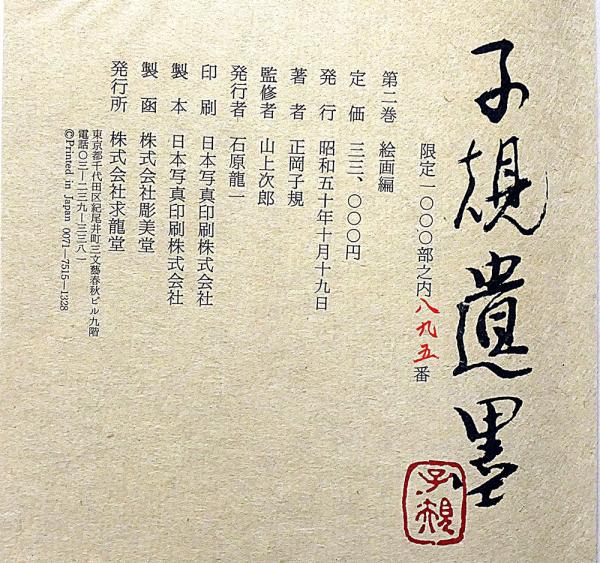 子規遺墨
子規
限定一〇〇〇部之内八九五番
第二巻 絵画編
定価 三三、〇〇〇円
発行 昭和五十年十月十九日
著者 正岡子規
監修者 山上次郎
発行者 石原龍一
印刷 日本写真印刷株式会社
製本 日本写真印刷株式会社
製函 株式会社彫美堂
発行所 株式会社求龍堂
東京都千代田区紀尾井町三文藝春秋ビル九階
電話〇三―二三九―三三八一
©Printed in Japan 0071―7515―1328